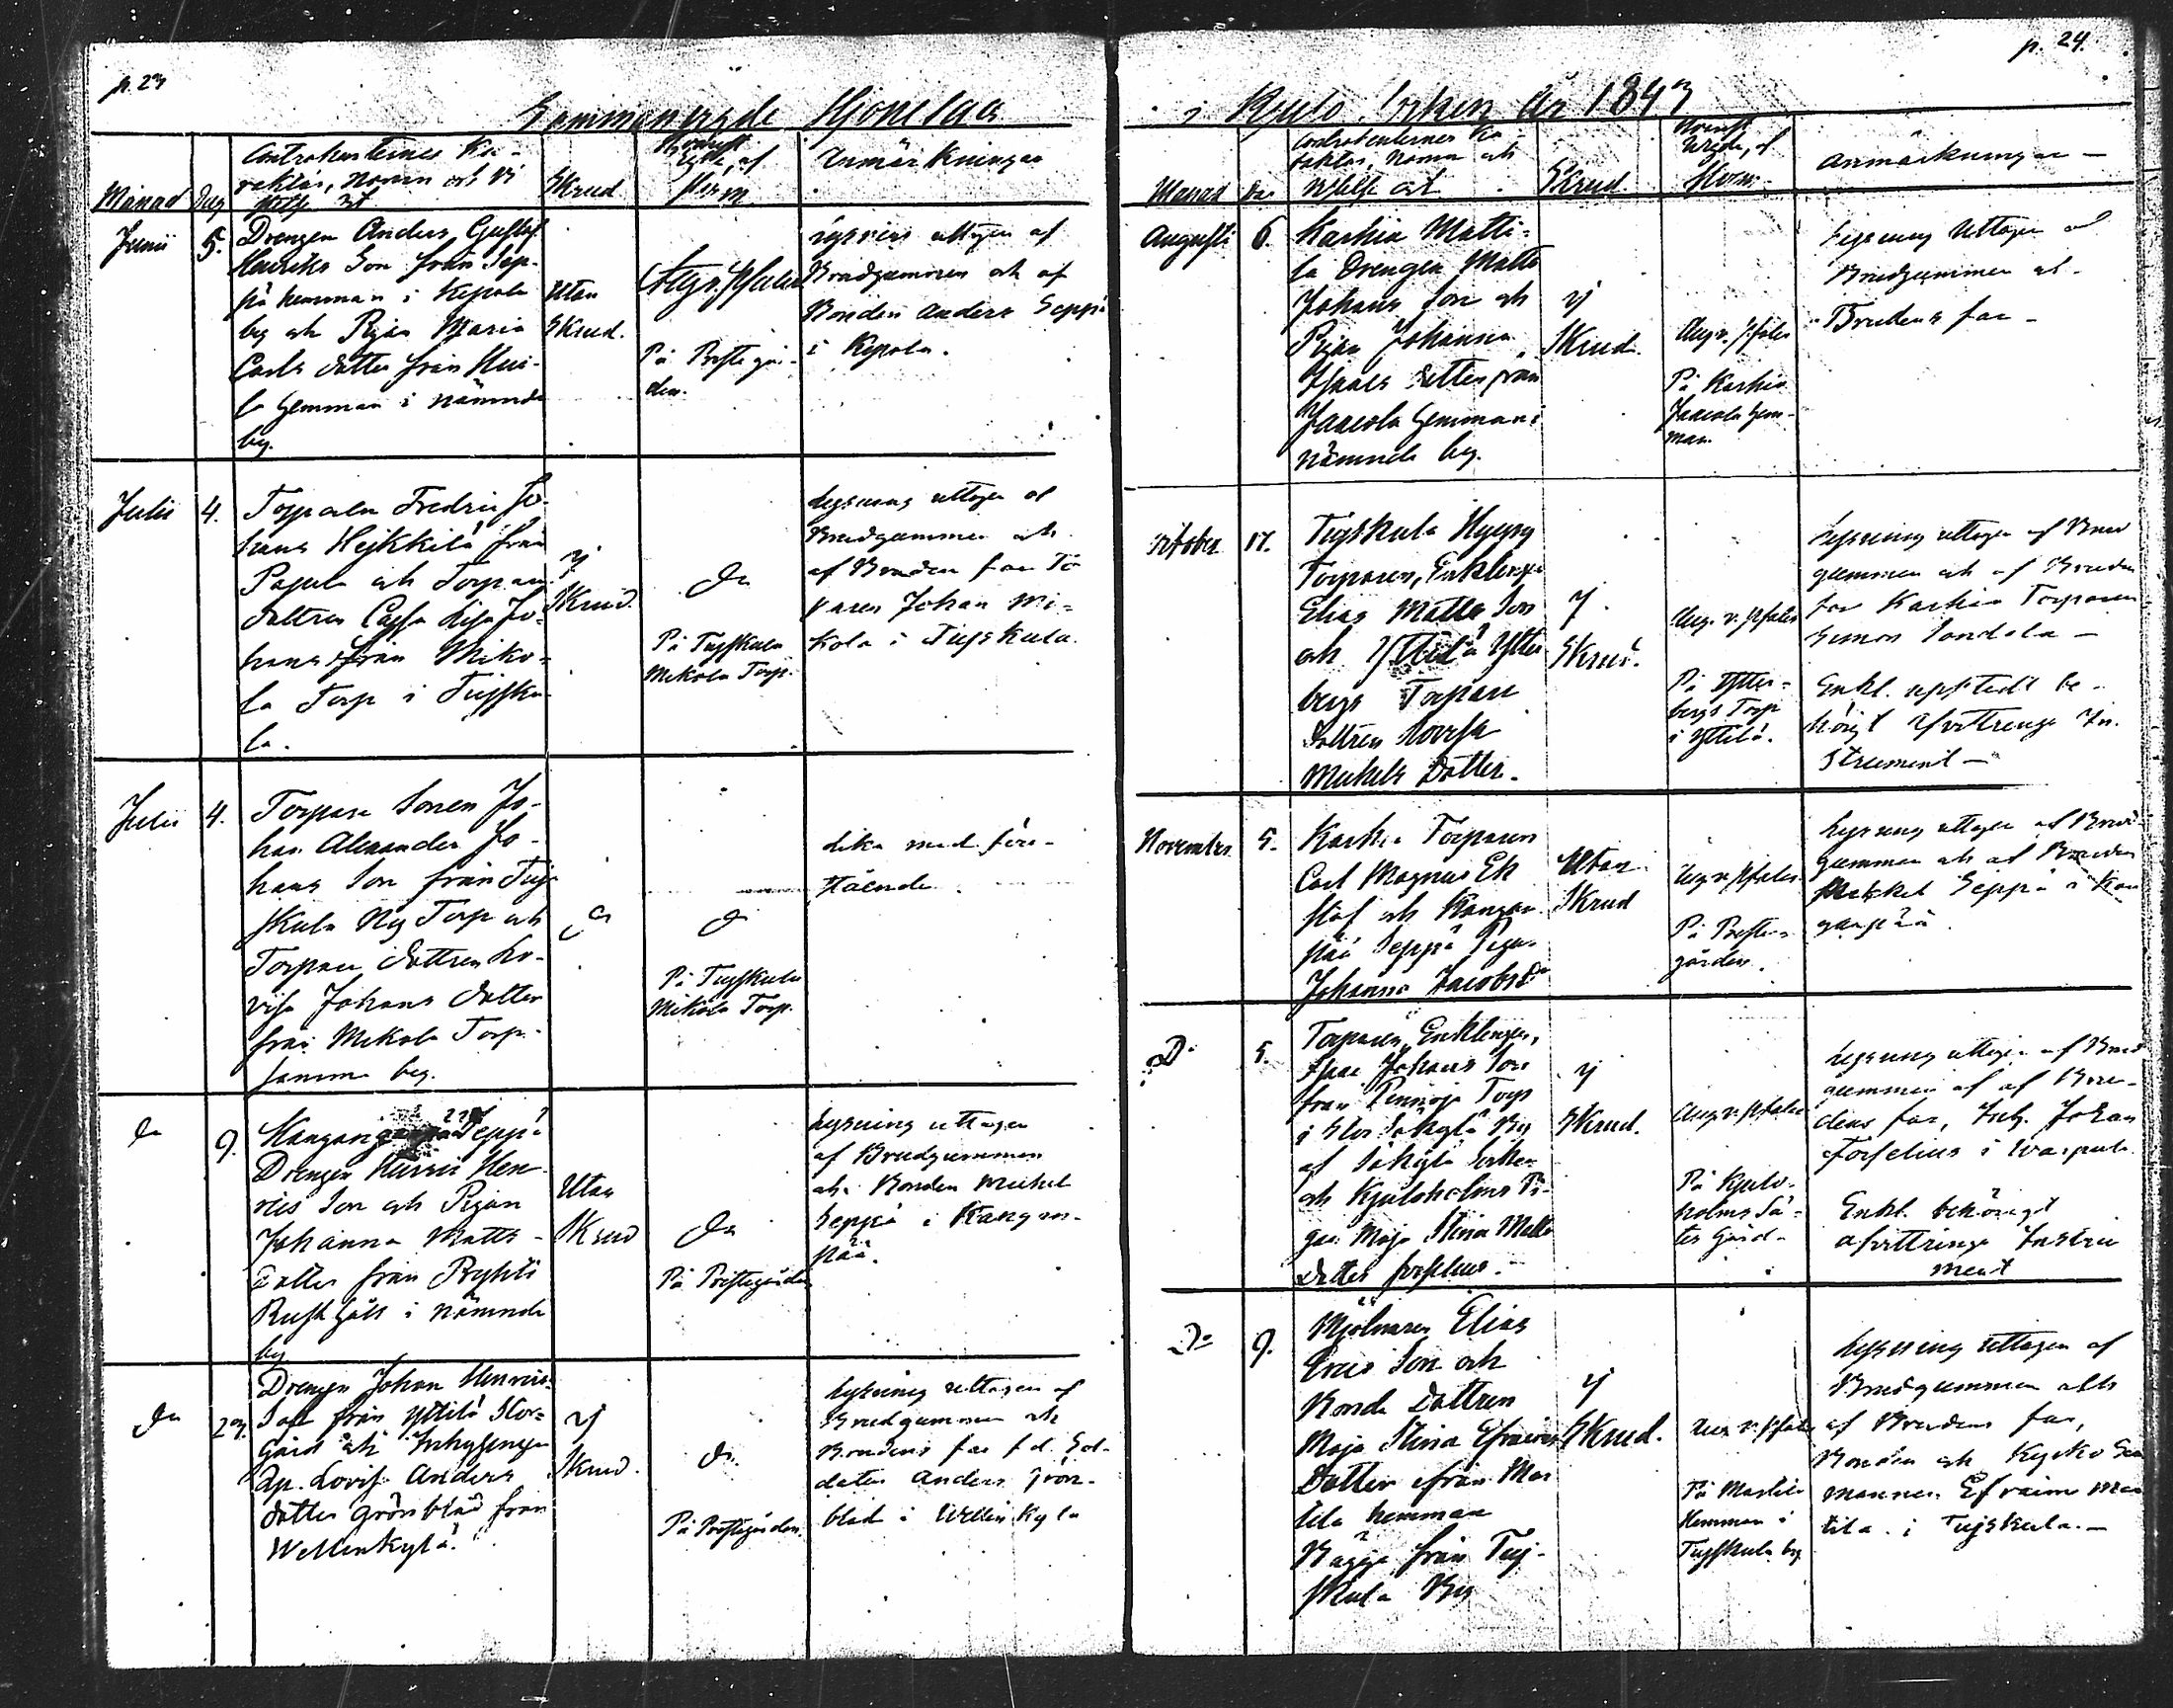 p. 23
Sammanvigde Hjonelag
Månad
Dag
Contrahenternes Ka-
raktär, namn och Vi
stelse ort
Skrud
af
Hvem
Anmärkningar
Junii
5.
Drengen Anders Gustaf
Henriks Son från Sep-
pä hemman i Kepola
by och Pigan Maria
Carls dotter från Hui-
la Hemman i nämnde
by.
Utan
Skrud.
På Prestegår-
den.
Lysning uttagen af
Brudgummen och af
Bonden Anders Seppä
i Kepola.
Julii
4.
Torparen Fredric Jo-
hans Hejkkilä från
Pappula och Torpare
dottren Cajsa Lisa Jo-
hans från Miko-
la Torp i Tujsku-
la.
ij
Skrud.
Do
På Tujskula
Mikola Torp.
Lysning uttagen af
Brudgummen och
af Brudens far Tor
paren Johan Mi-
kola i Tujskula.
Julii
4.
Torpare Sonen Jo-
han Alexander Jo-
hans Son från Tuj
skula Ny Torp och
Torpare dottren Lo-
visa Johans dotter
från Mikola Torp
samma by.
Do
På Tujskula
Mikola Torp.
Lika med före-
stående
Do
9.
Seppä
Drengen Henric Hen-
rics Son och Pigan
Johanna Matts-
dotter från
Rusthåll i nämnde
by
Utan
Skrud
Do
På Prestegården
Lysning uttagen
af Brudgummen
och Bonden Michel
Seppä i Kangan-
pää.
Do
27.
Drengen Johan Henrics
Son från Yttilä Stor-
Gård och Inhyses
Lovisa Anders
dotter Grönblad från
Wellenkylä.
ij
Skrud.
Do
På Prestegården.
Lysning uttagen af
Brudgummen och
Brudens far f.d. Sol-
daten Anders Grön-
blad i Wellinkylä
p. 24.
i Kjulo Socken År 1847
Månad
Da
Contrahenternes Ka-
raktär, namn och
Vistelse ort
Skrud.
af
Hvem.
Anmärkningar —
Augusti
6.
Karhia Matti-
la Drengen Matts
Johans Son och
Pigan Johanna
Isaacs dotter från
Jaacola Hemman i
nämnde by.
ij
Skrud.
På Karhia
Jaacola Hem-
man.
Lysning uttagen af
Brudgummen och
Brudens far —
October
17.
Tujskula
Torparen, Enklingen
Elias Matts Son
och Yttilä Ytter
bergs Torpare
dottren Lovisa
Michels Dotter.
ij
Skrud.
På Ytter-
bergs Torp
i Yttilä.
Lysning uttagen af Brud
gummen och af Brudens
far Karhia Torparen
Simon Sandola —
Enkl. uppstedt be-
hörigt Afvittrings In-
strument —
November
5.
Karhia Torparen
Carl Magnus Ek
stöf och Kangan
pää Seppä Pigan
Johanna Jacobs Dr
Utan
Skrud
På Preste-
gården.
Lysning uttagen af Brud-
gumman och af Bonden
Michel Seppä i Kan
ganpää.
Do
5.
Torparen, Enklingen,
Isaac Johans Son
från Torp
i Stor Säkylä By
af Säkylä Socken
och Kjuloholms Pi-
gan Maja Stina Matts
Dotter Forselius.
ij
Skrud.
På Kjulo-
holms Sä-
tes Gård.
Lysning uttagen af Brud
gummen af af Bru-
dens far, Inh. Johan
Forselius i
Enkl. behörigt
afvittrings Instru
ment
Do
9.
Mjölnaren Elias
Erics Son och
Bonde Dottren
Maja Stina Efraims
Dotter från Mar
tila hemman
Bägge från Tuj-
skula By
ij
Skrud.
På Martila
Hemman i
Tujskula by
Lysning uttagen af
Brudgummen och
af Brudens far,
Bonden och Kyrko
mannen Efraim Mar
tila i Tujskula. —